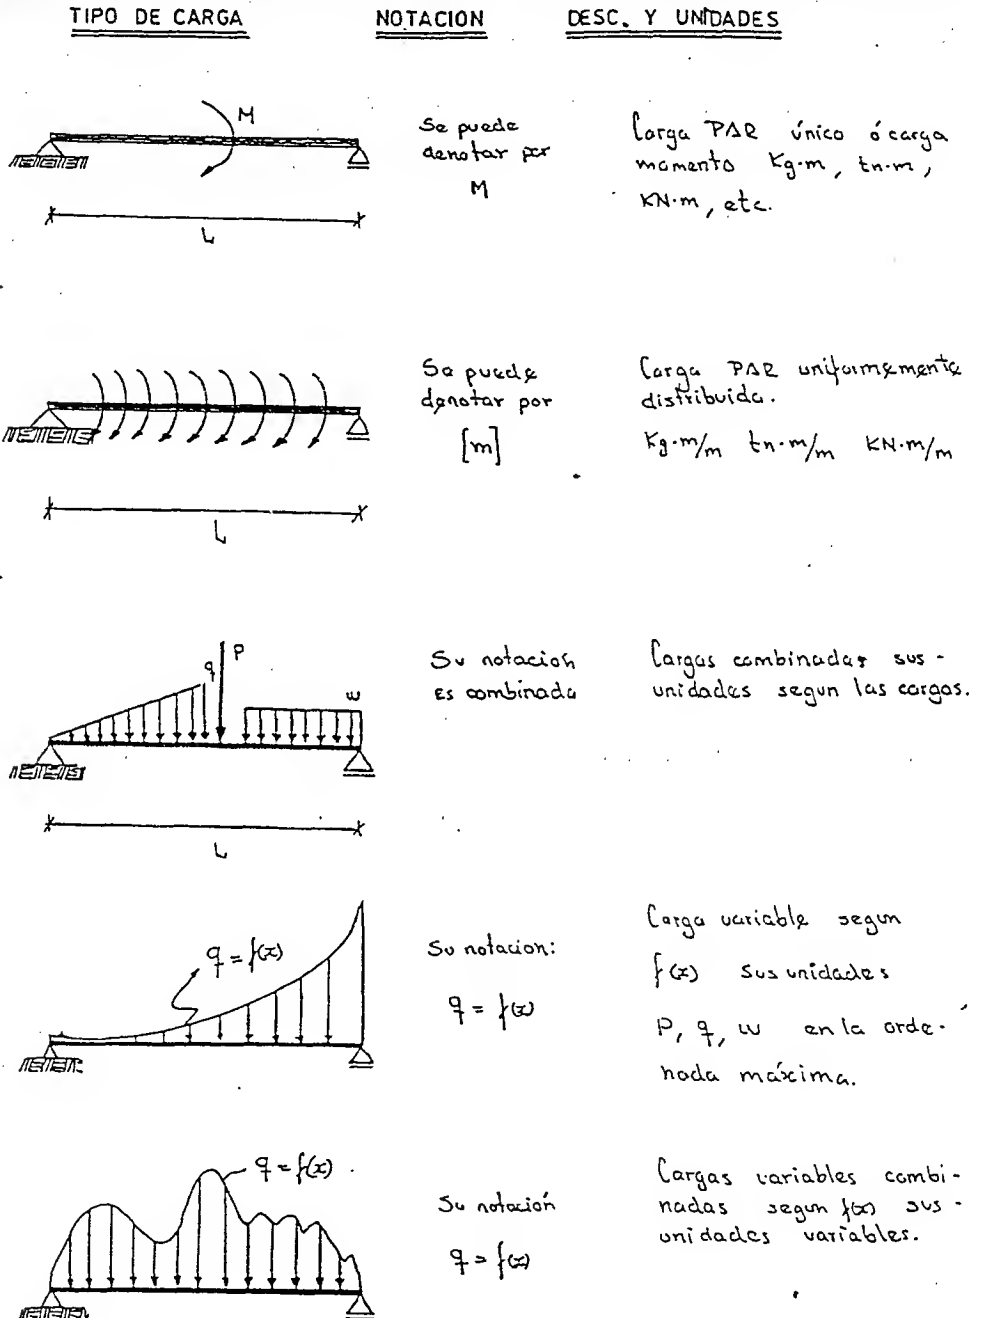 TIPO DE CARGA NOTACION DESC. Y UNIDADES
M
Se puede
denotar por
M
Carga PAR único ó carga
momento Kg·m, tn·m,
KN·m, etc.
L
Se puede
denotar por
[m]
Carga PAR uniformemente
distribuida.
Kg·m/m tn·m/m KN·m/m
L
q P w
Su notacion
Es combinada
Cargas combinadas sus-
unidades segun las cargas.
L
q = f(x)
Su notacion:
q = f(x)
Carga variable segun
f(x) Sus unidades
P, q, w en la orde-
nada máxima.
q = f(x)
Su notación
q = f(x)
Cargas variables combi-
nadas segun f(x) sus-
unidades variables.